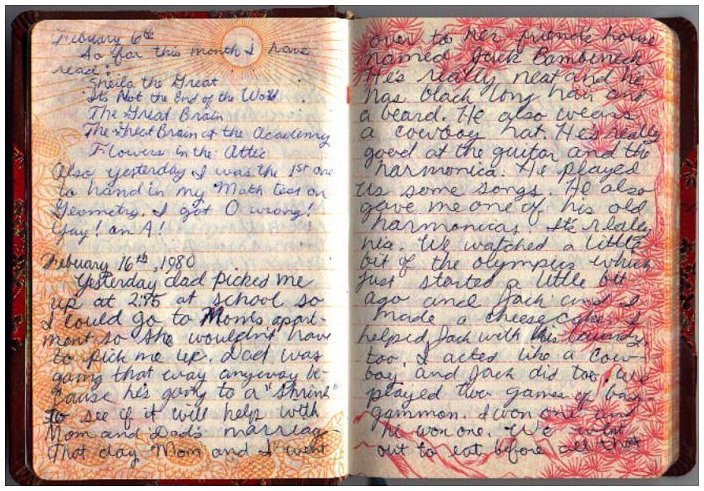 February 6th
So far this month I have
read:
Sheila the Great
Its Not the End of the World
The Great Brain
The Great Brain at the Academy
Flowers in the Attic
Also yesterday I was the 1st one
to hand in my Math test on
Geometry. I got 0 wrong!
Yay! an A!
February 16th, 1980
Yesterday dad picked me
up at 2:85 at school so
I could go to Moms apart-
ment so she wouldn't have
to pick me up. Dad was
going that way anyway be-
cause he's going to a "shrink"
to see if it will help with
Mom and Dad's marriage
That day Mom and I went
over to her friends house
named Jack Bambineck
He's really neat and he
has black long hair and
a beard. He also wears
a cowboy hat. He's really
good at the guitar and the
harmonica. He played
us some songs. He also
gave me one of his old
harmonicas. Its
We watched a little
bit of the olympics which
just started a little bit
ago and Jack and I
made a cheesecake I
helped Jack with his laundry
too. I acted like a cow-
boy and Jack did too. We
played two games of bac-
gammon. I won one and
he won one. We went
out to eat before all that